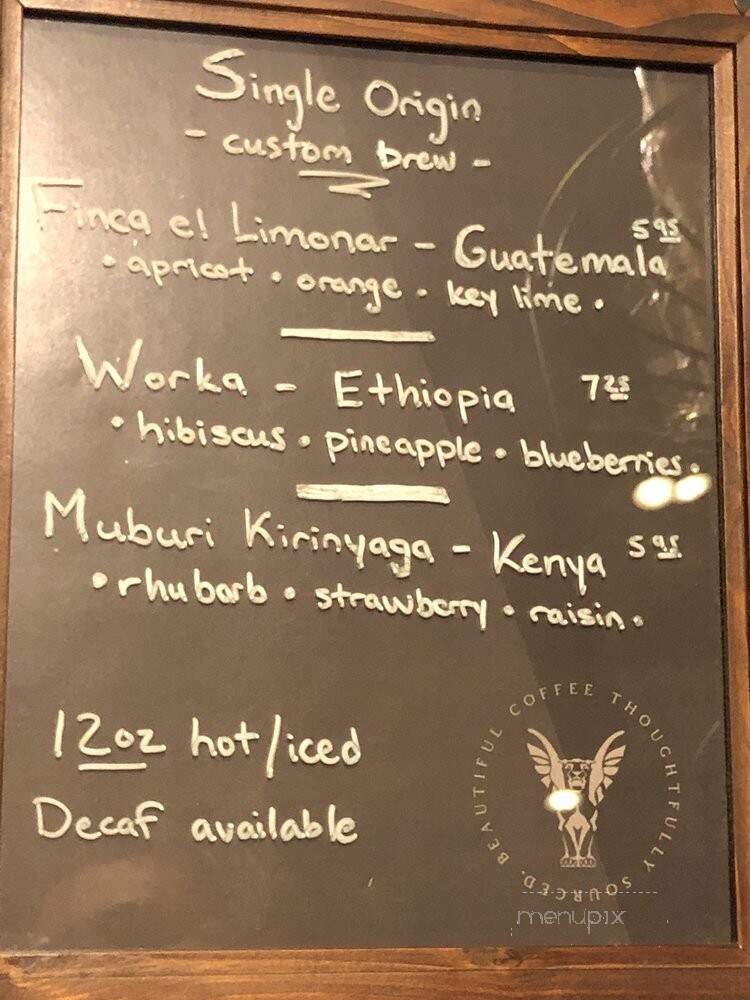 Single Origin
- custom brew -
Finca el Limonar - Guatemala 5 95
• apricot • orange • key lime •
Worka - Ethiopia 7 25
• hibiscus • pineapple • blueberries •
Muburi Kirinyaga - Kenya 5 95
• rhubarb • strawberry • raisin •
12oz hot/iced
Decaf available
BEAUTIFUL COFFEE THOUGHTFULLY SOURCED.
menupix